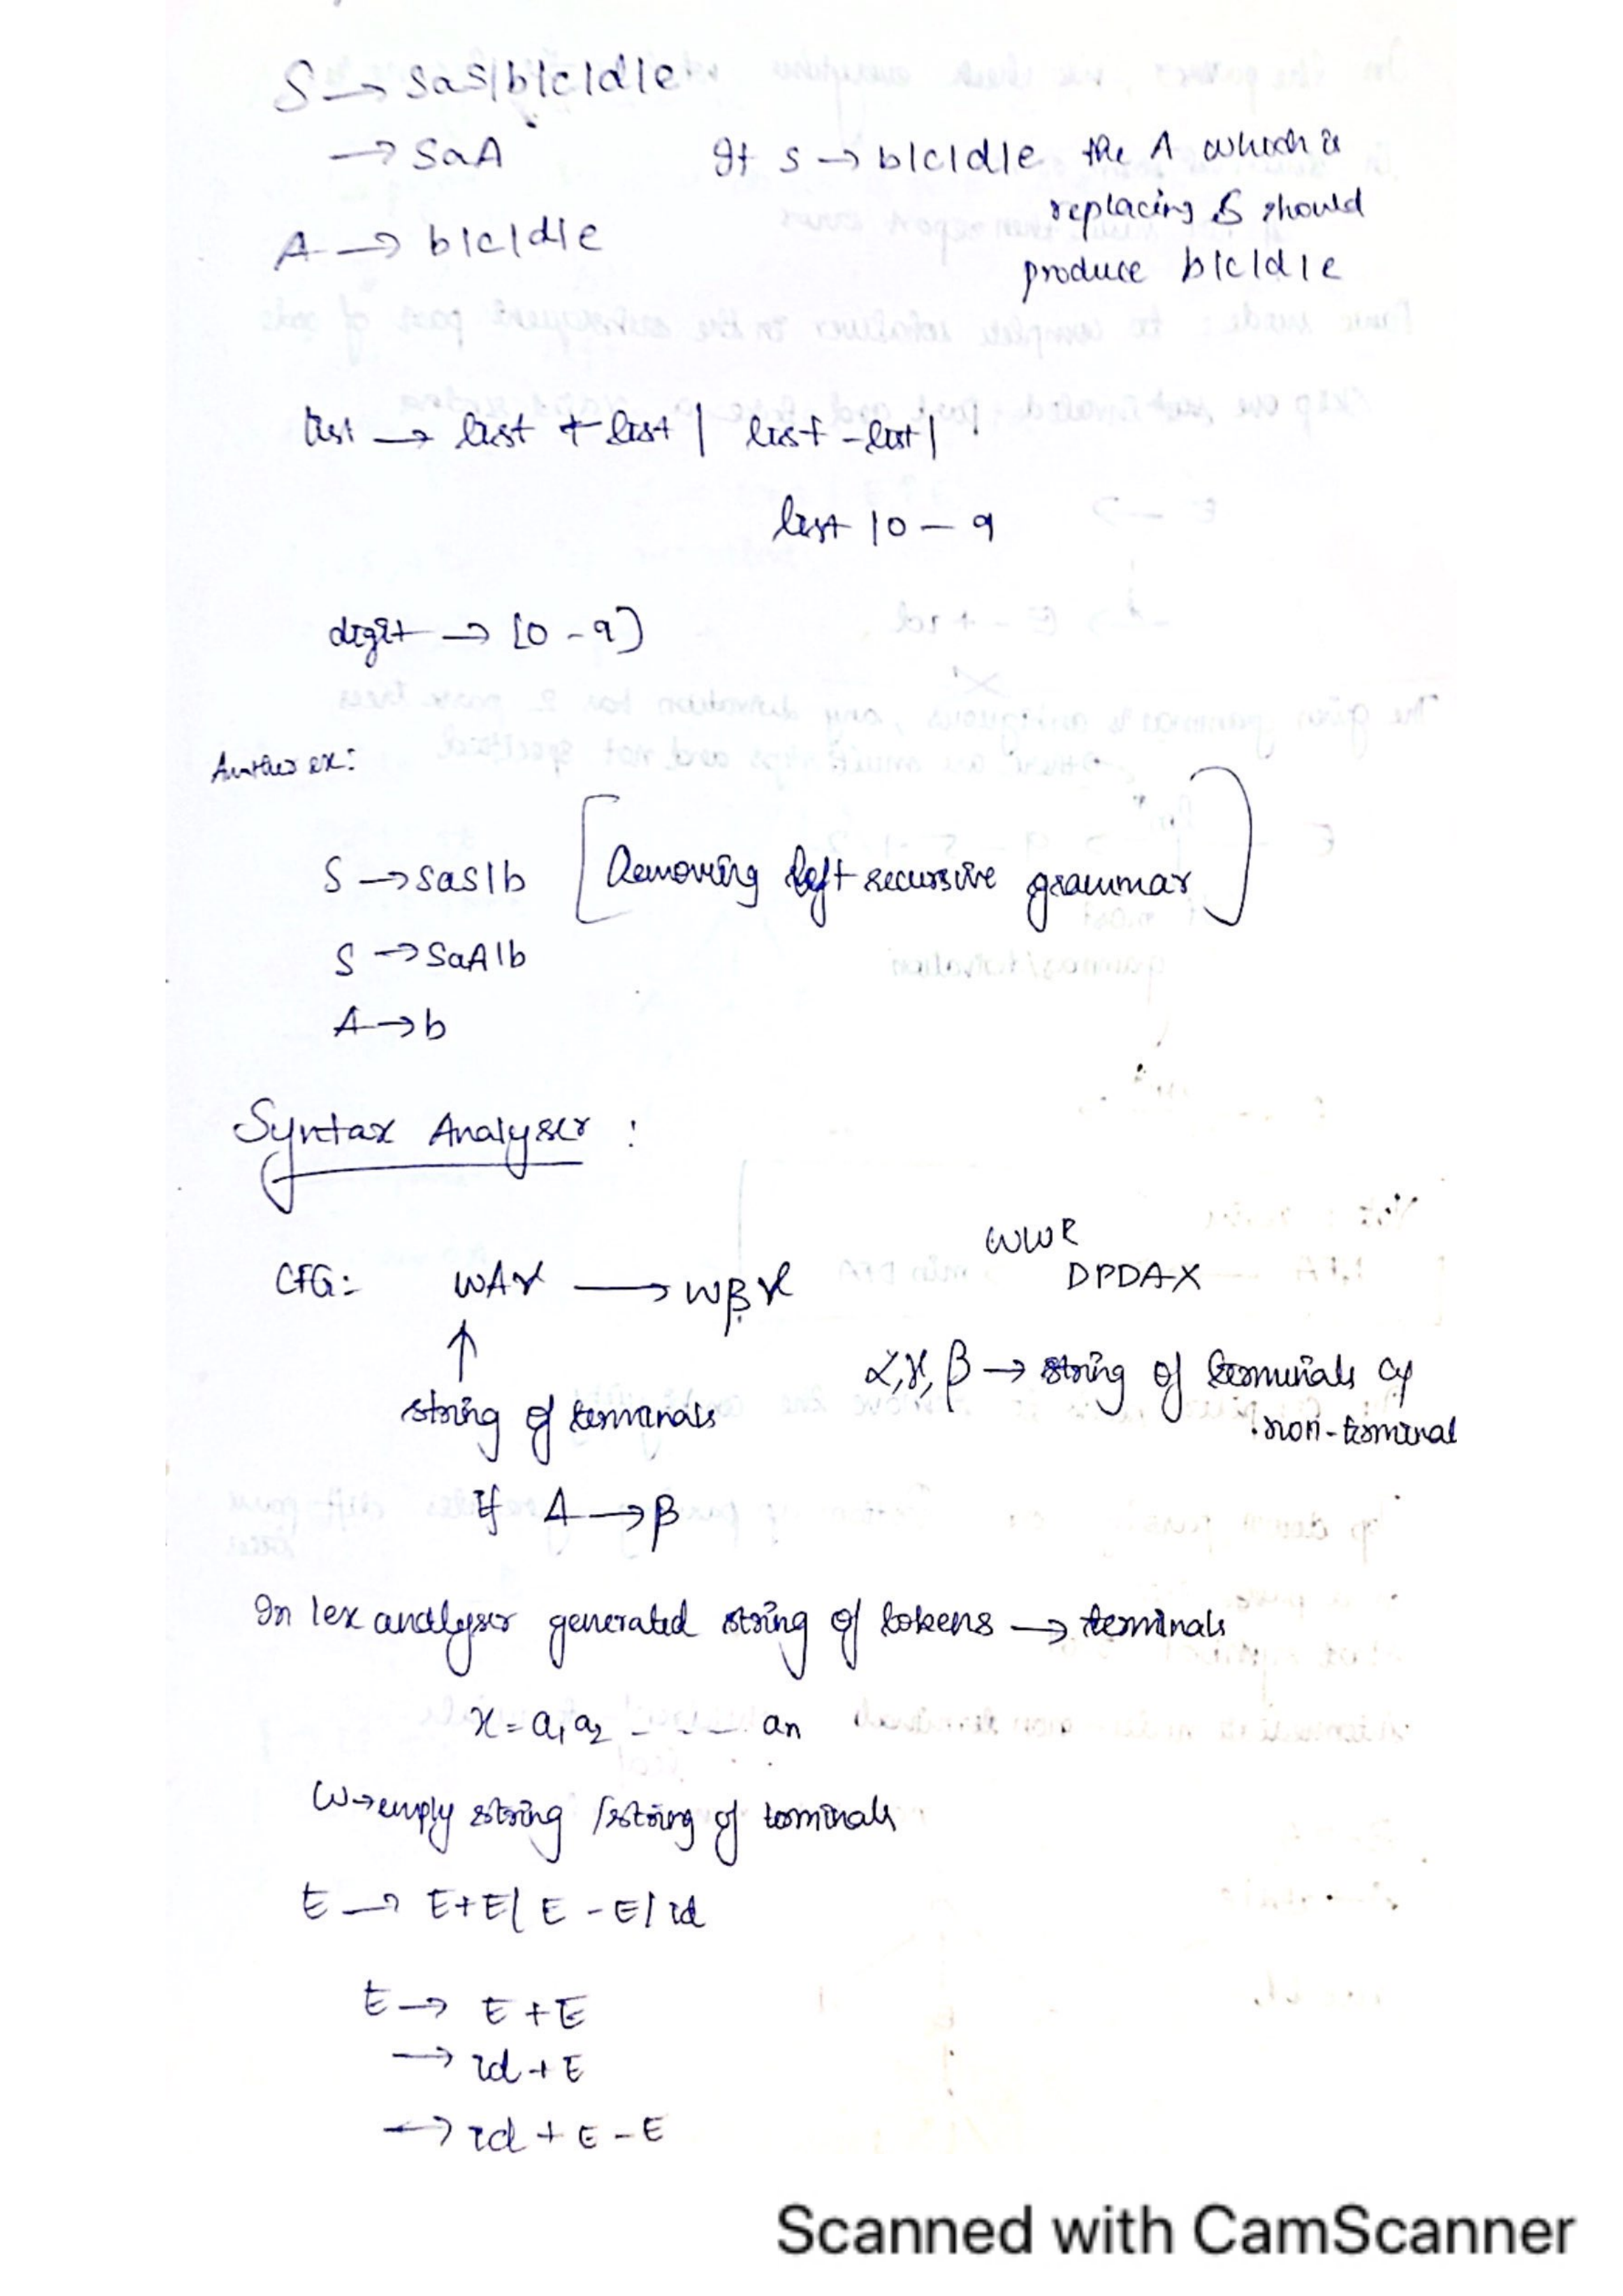 S → SaS|b|c|d|e
→ SaA
If S → b|c|d|e the A which is
replacing S should
produce b|c|d|e
A → b|c|d|e
list → list + list | list - list |
list |0 - 9
digit → [0 - 9]
Another ex:
S → SaS|b
[Removing left recursive grammar]
S → SaA|b
A → b
Syntax Analyser :
WWR
DPDA-X
CFG: WAγ → Wβγ
↑
string of terminals
α, γ, β → string of terminals
non-terminal
If A → β
In lex analyser generated string of tokens → terminals
x = a1 a2 - - - - an
W → empty string / string of terminals
E → E+E| E - E| id
E → E + E
→ id + E
→ id + E - E
Scanned with CamScanner